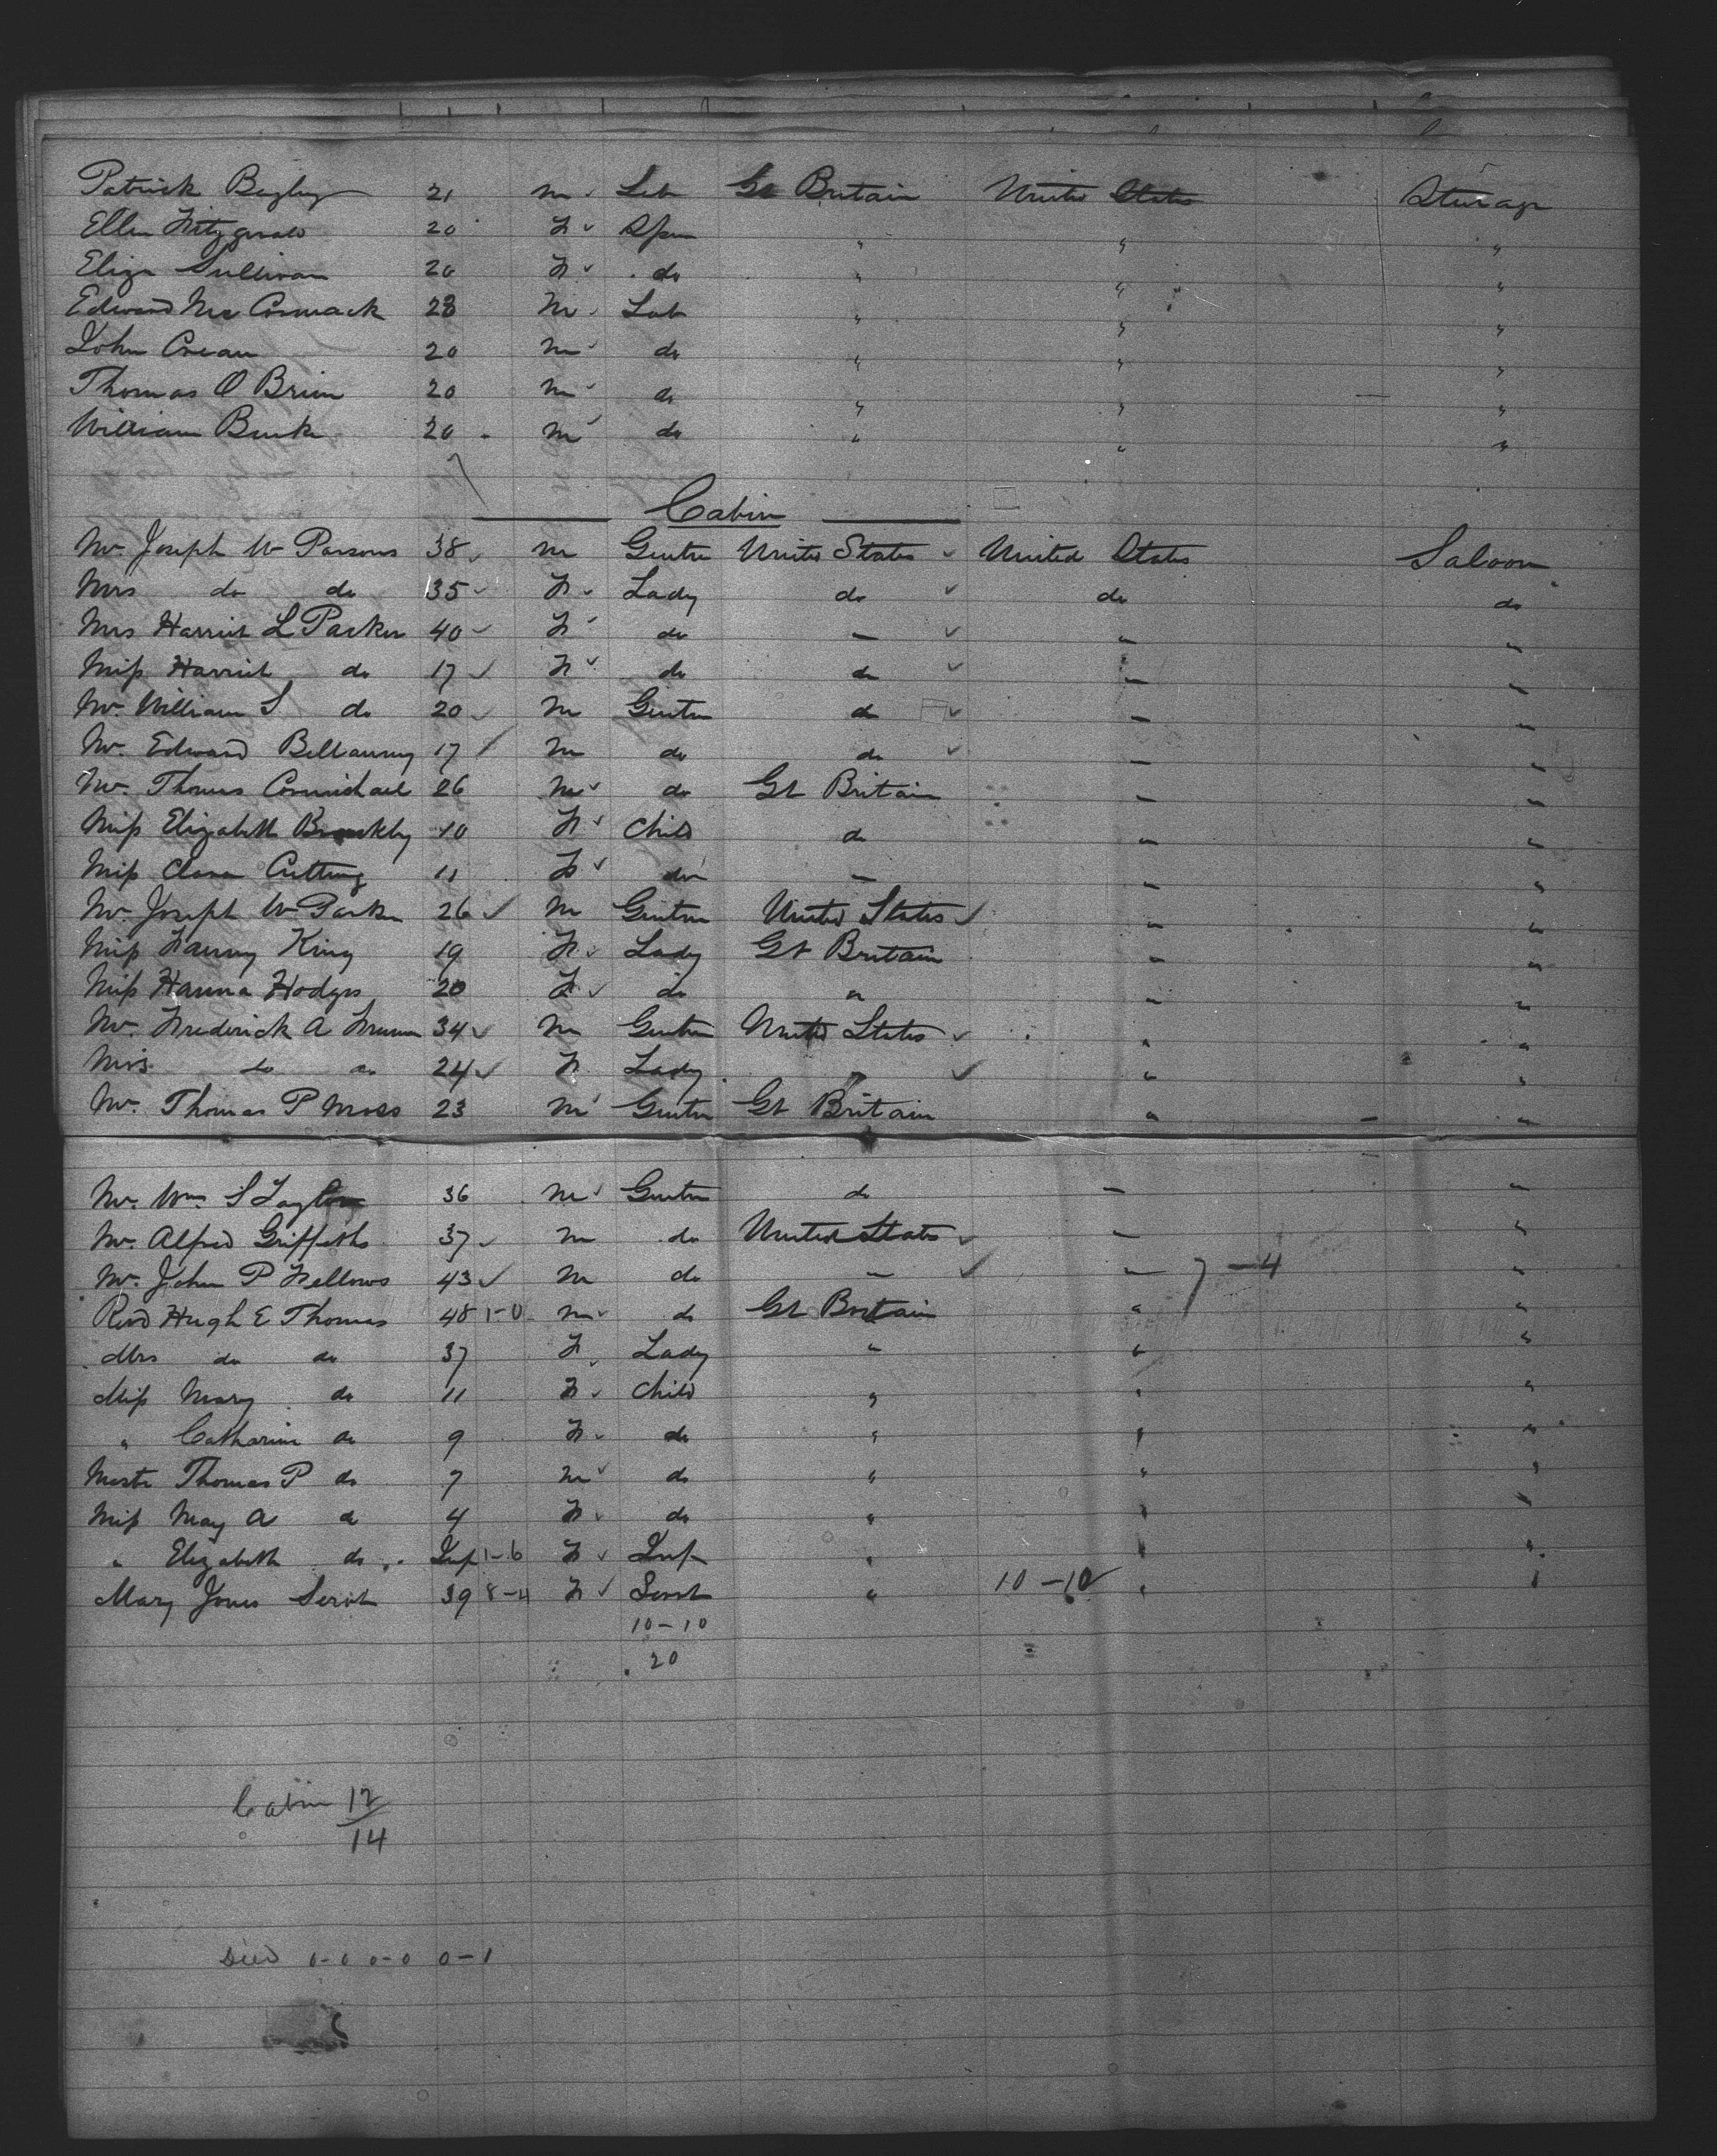 Patrick Begley 21 m Lab Gt Britain United States Steerage
Ellen Fitzgerald 20 F Spin " " "
Eliza Sullivan 20 F do " " "
Edward Mc Cormack 28 m Lab " " "
John Crean 20 m do " " "
Thomas O Brien 20 m do " " "
William Burke 20 m do " " "
Cabin
Mr. Joseph W Parsons 38 m Gentn United States United States Saloon
Mrs do do 35 F Lady do do do
Mrs Harriet L Parker 40 F do " " "
Miss Harriet do 17 F do do " "
Mr. William S do 20 m Gentn do " "
Mr. Edward Bellamy 17 m do do " "
Mr. Thomas Carmichael 26 m do Gt Britain " "
Miss Elizabeth 10 F Child do " "
Miss Clara Cutting 11 F do " " "
Mr. Joseph W Parker 26 m Gentn United States " "
Miss Fanny King 19 F Lady Gt Britain " "
Miss Hanna Hodges 20 F do " " "
Mr. Frederick A 34 m Gentn United States " "
Mrs. do do 24 F Lady " " "
Mr. Thomas P Moss 23 m Gentn Gt Britain " "
Mr. Wm. S Taylor 36 m Gentn do " "
Mr. Alfred Griffiths 37 m do United States " "
Mr. John P Fellows 43 m do " " 7-4 "
Revd Hugh E Thomas 48 1-0 m do Gt Britain " "
Mrs do do 37 F Lady " " "
Miss Mary do 11 F Child " " "
" Catharine do 9 F do " " "
Mastr Thomas P do 7 m do " " "
Miss May A do 4 F do " " "
" Elizabeth do Inf 1-6 F Inf " " "
Mary Jones Servt 39 8-4 F Servt " 10-10 " "
10-10
20
Cabin 12
14
Died 0-0 0-0 0-1